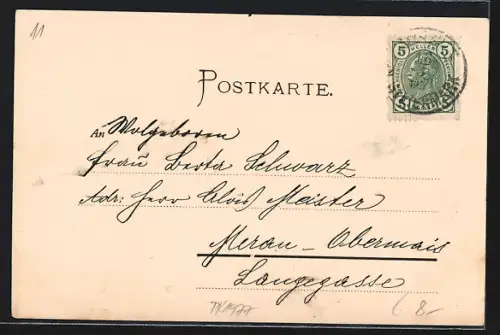 11
POSTKARTE.
5 HELLER 5
An Wolgeboren
Frau Berta Schwarz
Adr: Herr Alois Meister
Meran – Obermais
Langegasse
8.-